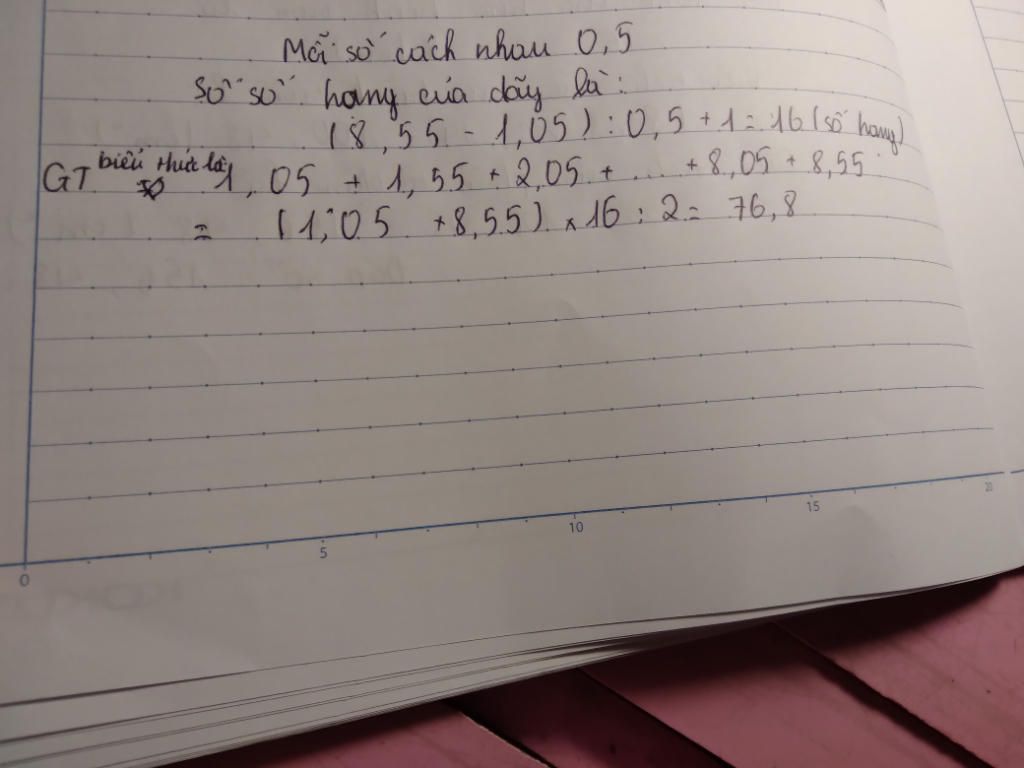 Mỗi số cách nhau 0,5
Số số hạng của dãy là:
(8,55 - 1,05) : 0,5 + 1 = 16 (số hạng)
GT biểu thức là 1,05 + 1,55 + 2,05 + ... + 8,05 + 8,55
= (1,05 + 8,55) x 16 : 2 = 76,8
0 5 10 15 20